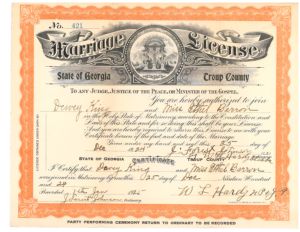 No. 421
Marriage License
State of Georgia Troup County
TO ANY JUDGE, JUSTICE OF THE PEACE, OR MINISTER OF THE GOSPEL.
You are hereby authorized to join
Dewey King and Miss Ethel
in the Holy State of Matrimony according to the Constitution and
Laws of this State and for so doing this shall be your
And you are hereby required to return this License to me with your
Certificate hereon of the fact and date of the Marriage
Given under my hand and seal this 25 day of
Dec
STATE OF GEORGIA CERTIFICATE TROUP COUNTY
I Certify that Dewey King and Miss Ethel
were joined in Matrimony by me this 25 day of Dec Nineteen Hundred
and 24
Recorded Jan 1925 W. L. Hardy
PARTY PERFORMING CEREMONY RETURN TO ORDINARY TO BE RECORDED